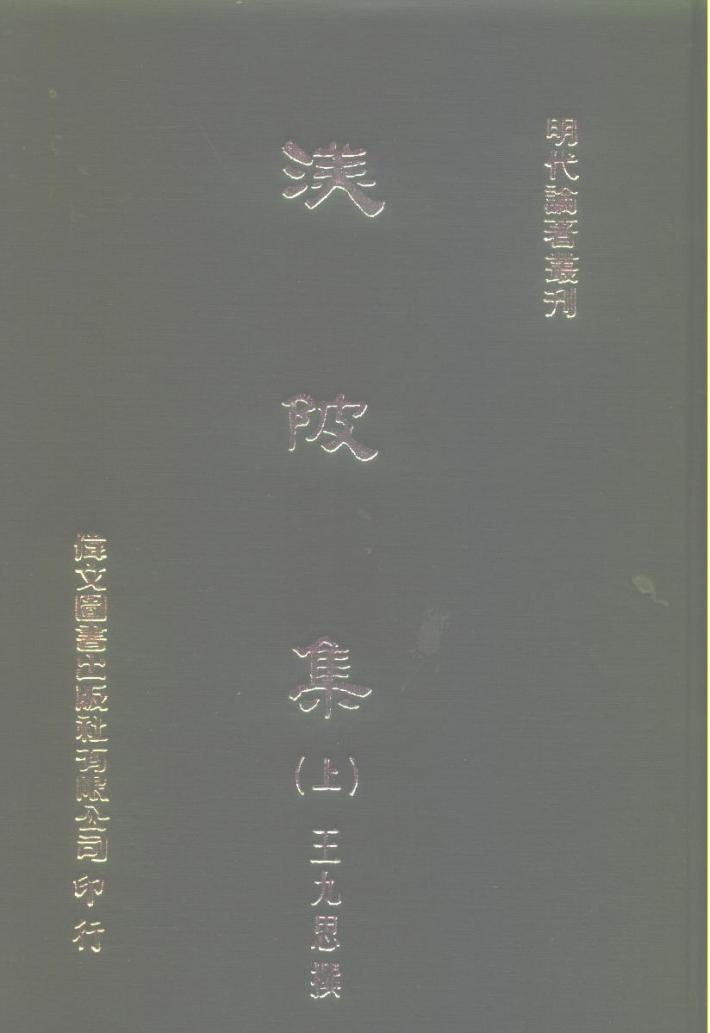 明代論著叢刊
渼陂集(上) 王九思撰
偉文圖書出版社有限公司 印行